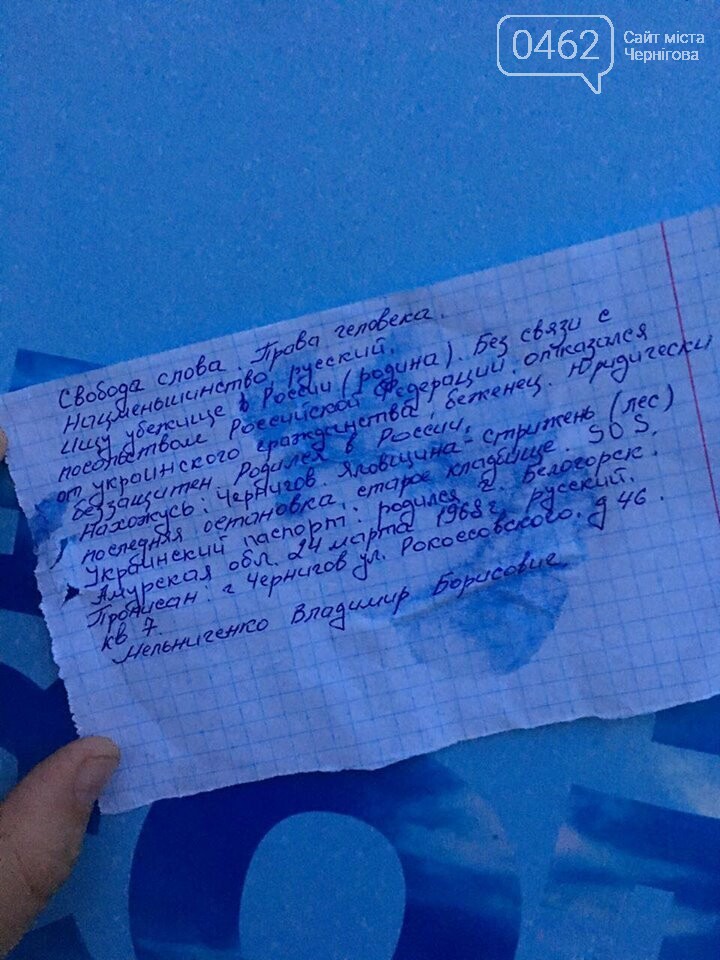 0462
Сайт міста
Чернігова
Свобода слова. Права человека.
Нацменьшинство русский.
Ищу убежище в России (родина). Без связи с
посольством Российской Федерации, отказался
от украинского гражданства, беженец. Юридически
беззащитен. Родился в России.
Нахожусь: Чернигов. Яловщина-стрижень (лес)
последняя остановка, старое кладбище. SOS.
Украинский паспорт: родился г. Белогорск.
Амурская обл. 24 марта 1968г, русский.
Прописан: г Чернигов ул. Рокоссовского. д 46.
кв 7.
Мельниченко Владимир Борисович